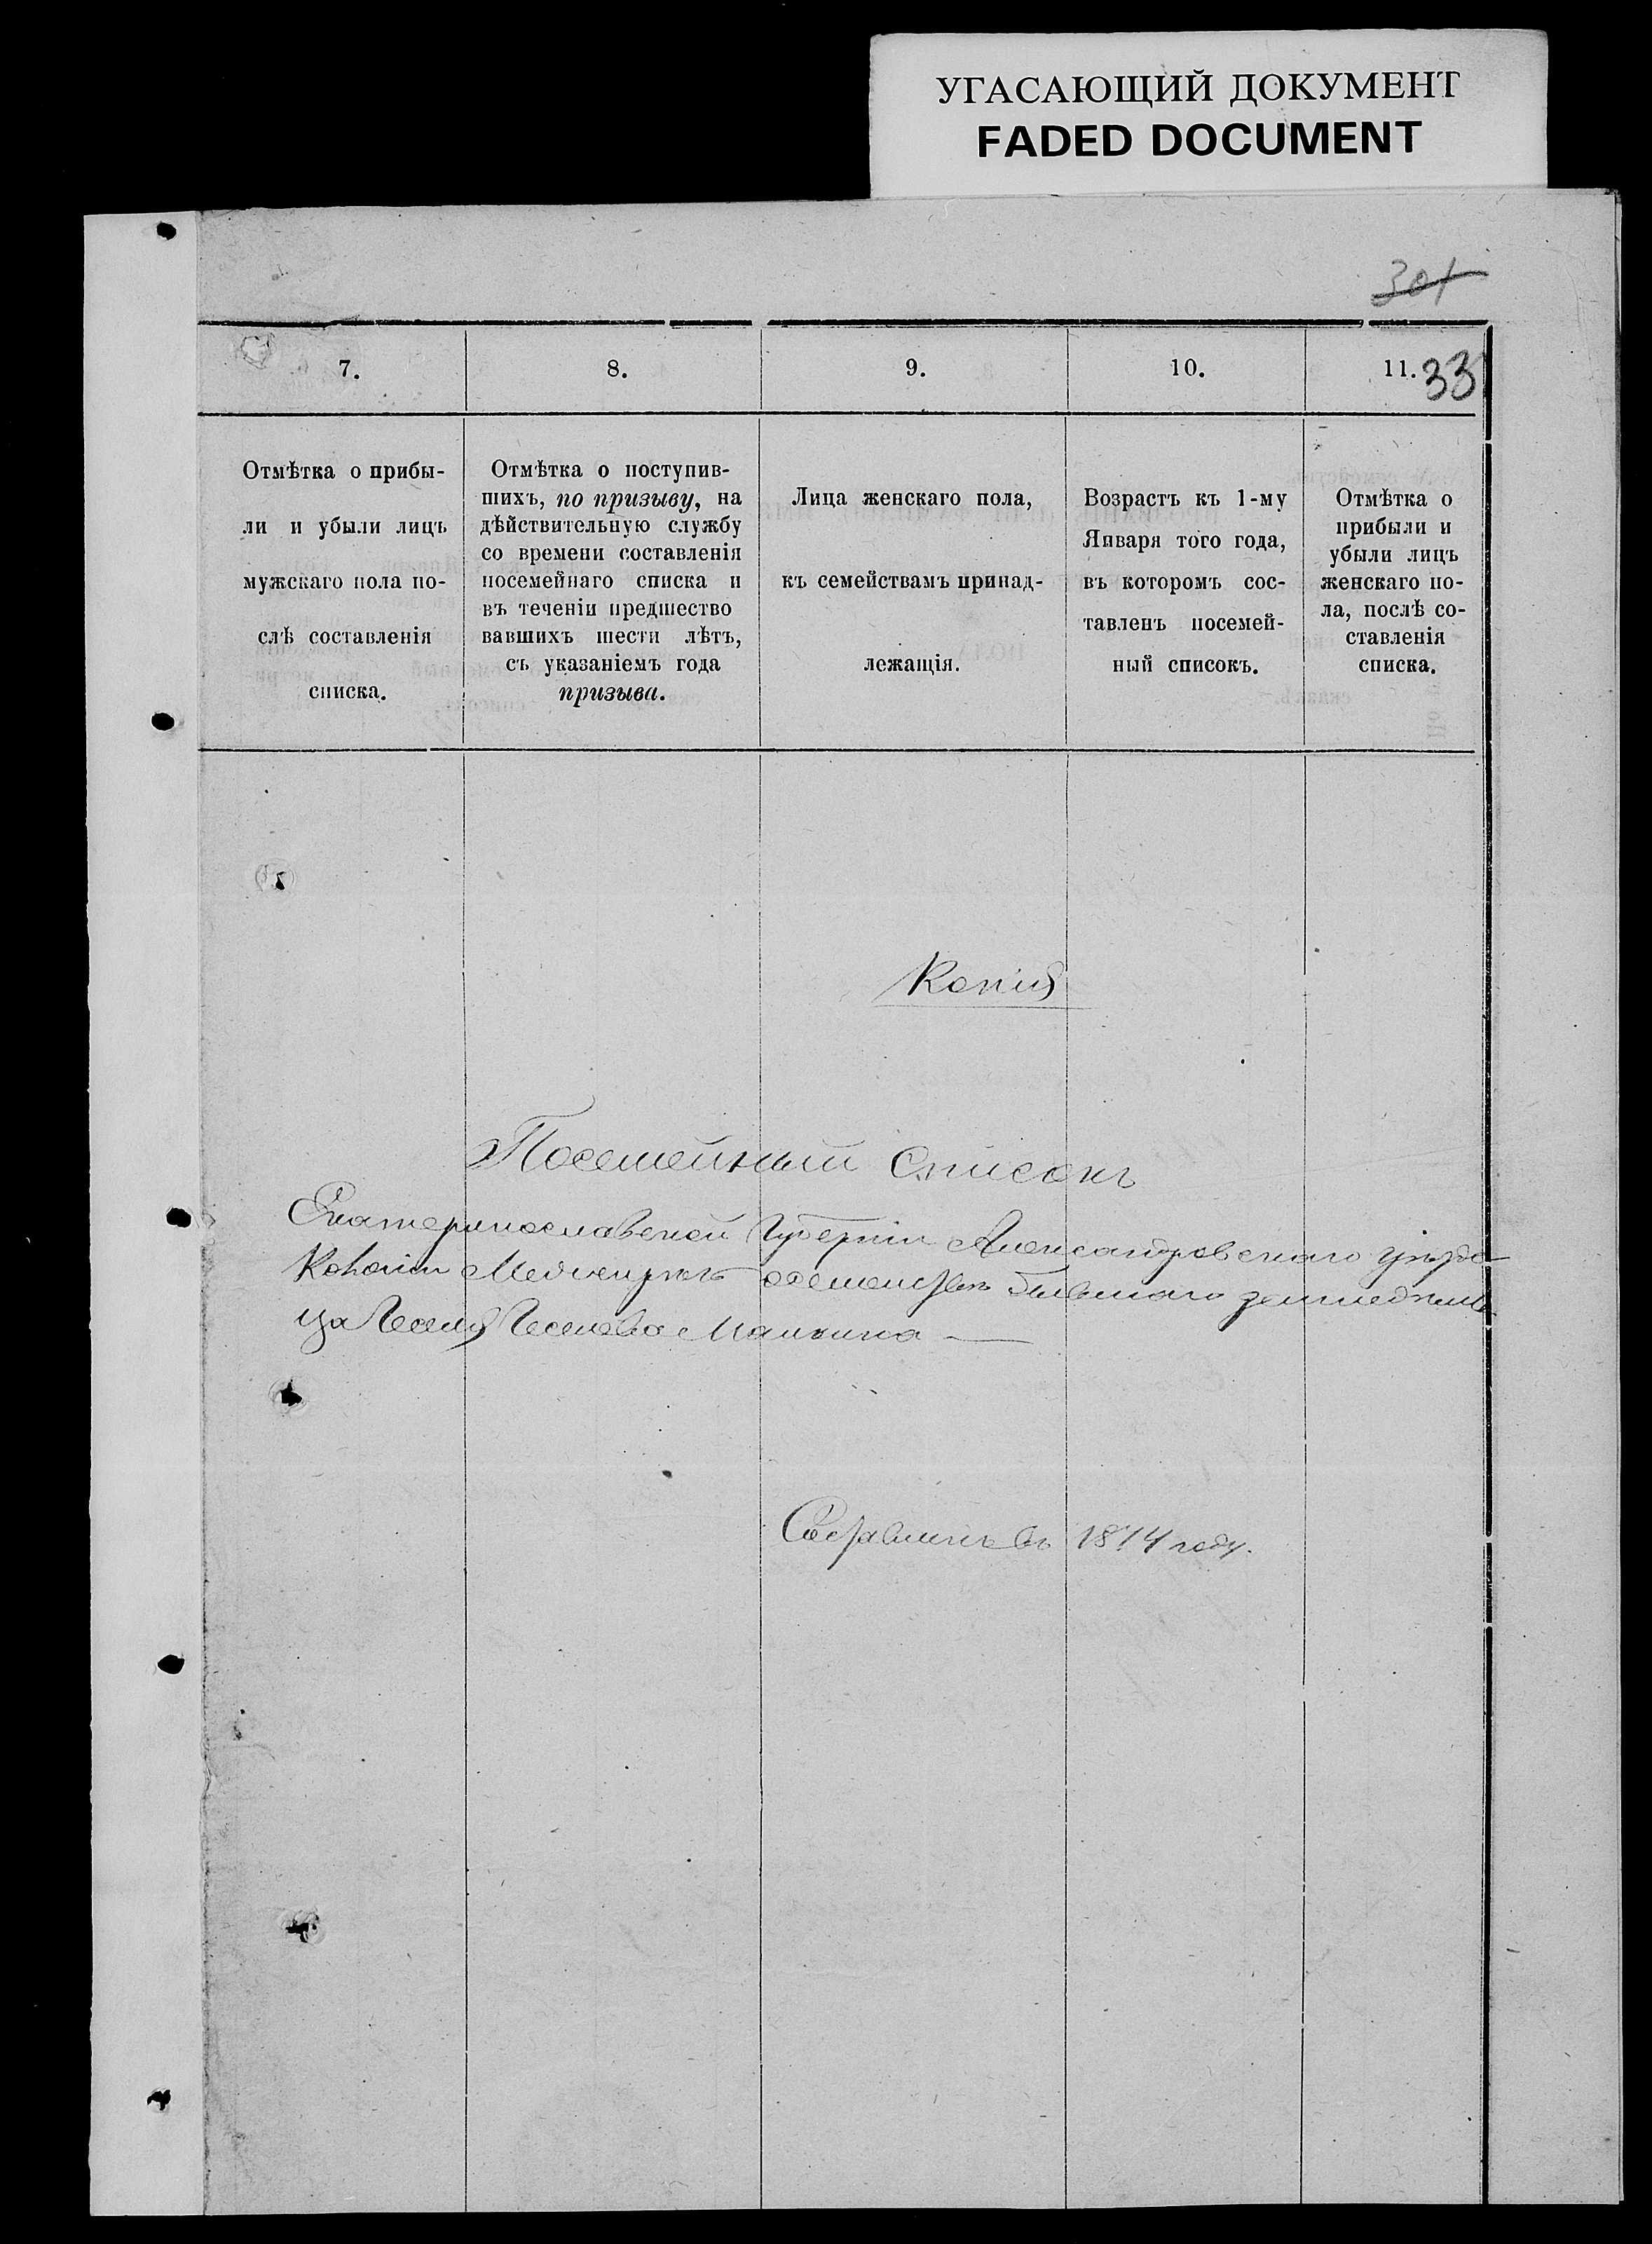 УГАСАЮЩИЙ ДОКУМЕНТ
FADED DOCUMENT
301
7.
8.
9.
10.
11.
33
Отмѣтка о прибы-
ли и убыли лицъ
мужскаго пола по-
слѣ составленія
списка.
Отмѣтка о поступив-
шихъ, по призыву, на
дѣйствительную службу
со времени составленія
посемейнаго списка и
въ теченіи предшество
вавшихъ шести лѣтъ,
съ указаніемъ года
призыва.
Лица женскаго пола,
къ семействамъ принад-
лежащія.
Возрастъ къ 1-му
Января того года,
въ которомъ сос-
тавленъ посемей-
ный списокъ.
Отмѣтка о
прибыли и
убыли лицъ
женскаго по-
ла, послѣ со-
ставленія
списка.
Копія
Посемейный списокъ
Екатеринославской Губерніи Александровскаго уѣзда
Колоніи Межиричъ о семействѣ бывшаго земледѣль-
ца
Составленъ въ 1874 году.